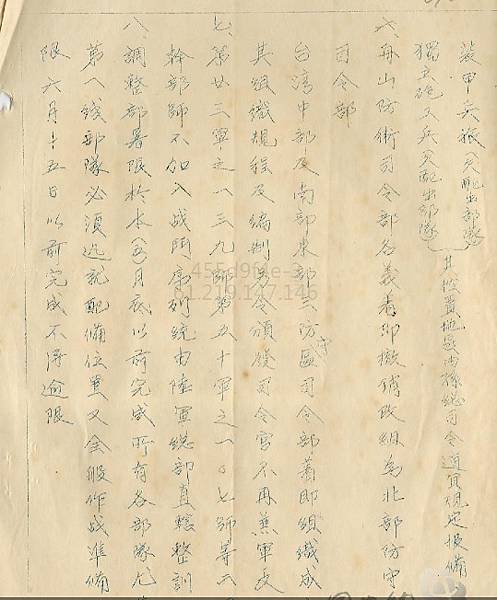 裝甲兵旅(欠配出部隊)
獨立砲工兵(欠配出部隊)
其控置地區由孫總司令適宜規定報備
六、舟山防衛司令部名義着即撤銷改組為北部防守
司令部
台灣中部及南部東部三防守區司令部着即組織成
其組織規程及編制另令頒發司令官不再兼軍長
七、第廿二軍之一三九師第五十軍之一〇七師等二
幹部師不加入战鬥序列統由陸軍總部直轄整訓
八、調整部署限於本(五)月底以前完成所有各部隊尤
第一線部隊必須迅就配備位置又全般作战準備
限六月十五日以前完成不得逾限
455d9f4e-2
61.219.147.146